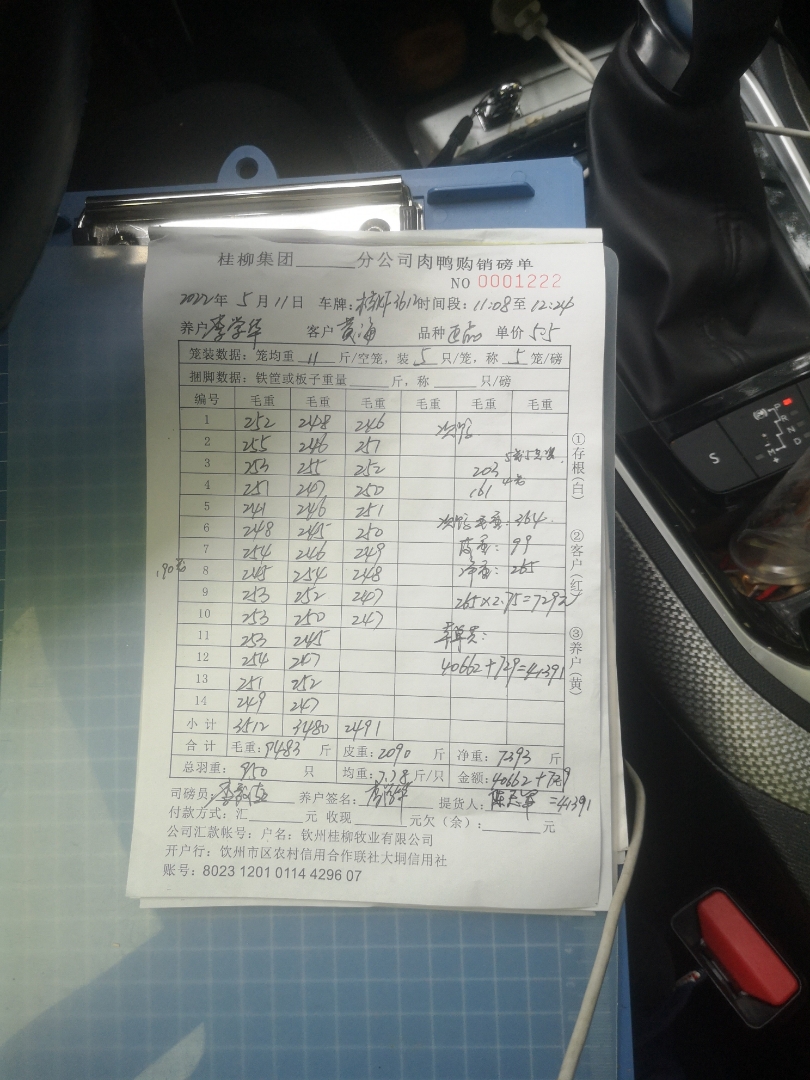 桂柳集团______分公司肉鸭购销磅单
NO 0001222
2022年 5 月 11 日 车牌: 时间段: 11:08 至 12:24
养户 李学华 客户 黄海 品种 正品 单价 5.5
笼装数据: 笼均重 11 斤/空笼, 装 5 只/笼, 称 5 笼/磅
捆脚数据: 铁筐或板子重量______斤, 称______只/磅
编号 毛重 毛重 毛重 毛重 毛重 毛重
1 252 248 246
2 255 246 251
3 253 255 252 203
4 251 247 250 161
5 241 246 251 毛重: 364
6 248 245 250 皮重: 99
7 254 246 249 净重: 265
190笼 8 245 254 248
9 253 252 247 265×2.75=729
10 253 250 247
11 253 245
12 254 247 40662+729=41391
13 251 252
14 249 247
小计 3512 3480 2491
合计 毛重: 9483 斤 皮重: 2090 斤 净重: 7393 斤
总羽重: 950 只 均重: 7.78 斤/只 金额: 40662+729
司磅员: 养户签名: 李学华 提货人: =41391
付款方式: 汇______元 收现______元欠（余）:______元
公司汇款帐号: 户名: 钦州桂柳牧业有限公司
开户行: 钦州市区农村信用合作联社大垌信用社
账号: 8023 1201 0114 4296 07
①存根(白)
②客户(红)
③养户(黄)
S
P
R
N
D
M
+